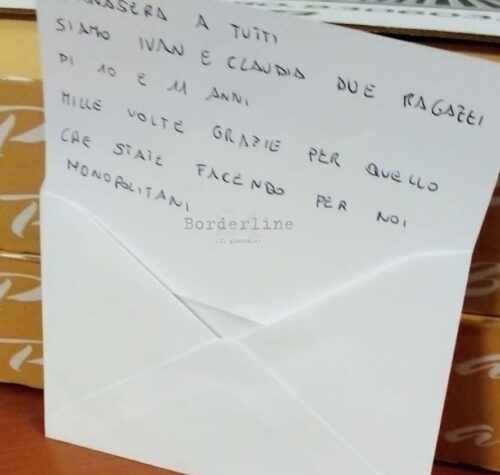 BUONASERA A TUTTI
SIAMO IVAN E CLAUDIA DUE RAGAZZI
DI 10 E 11 ANNI
MILLE VOLTE GRAZIE PER QUELLO
CHE STATE FACENDO PER NOI
MONOPOLITANI
Borderline
-Il giornale-